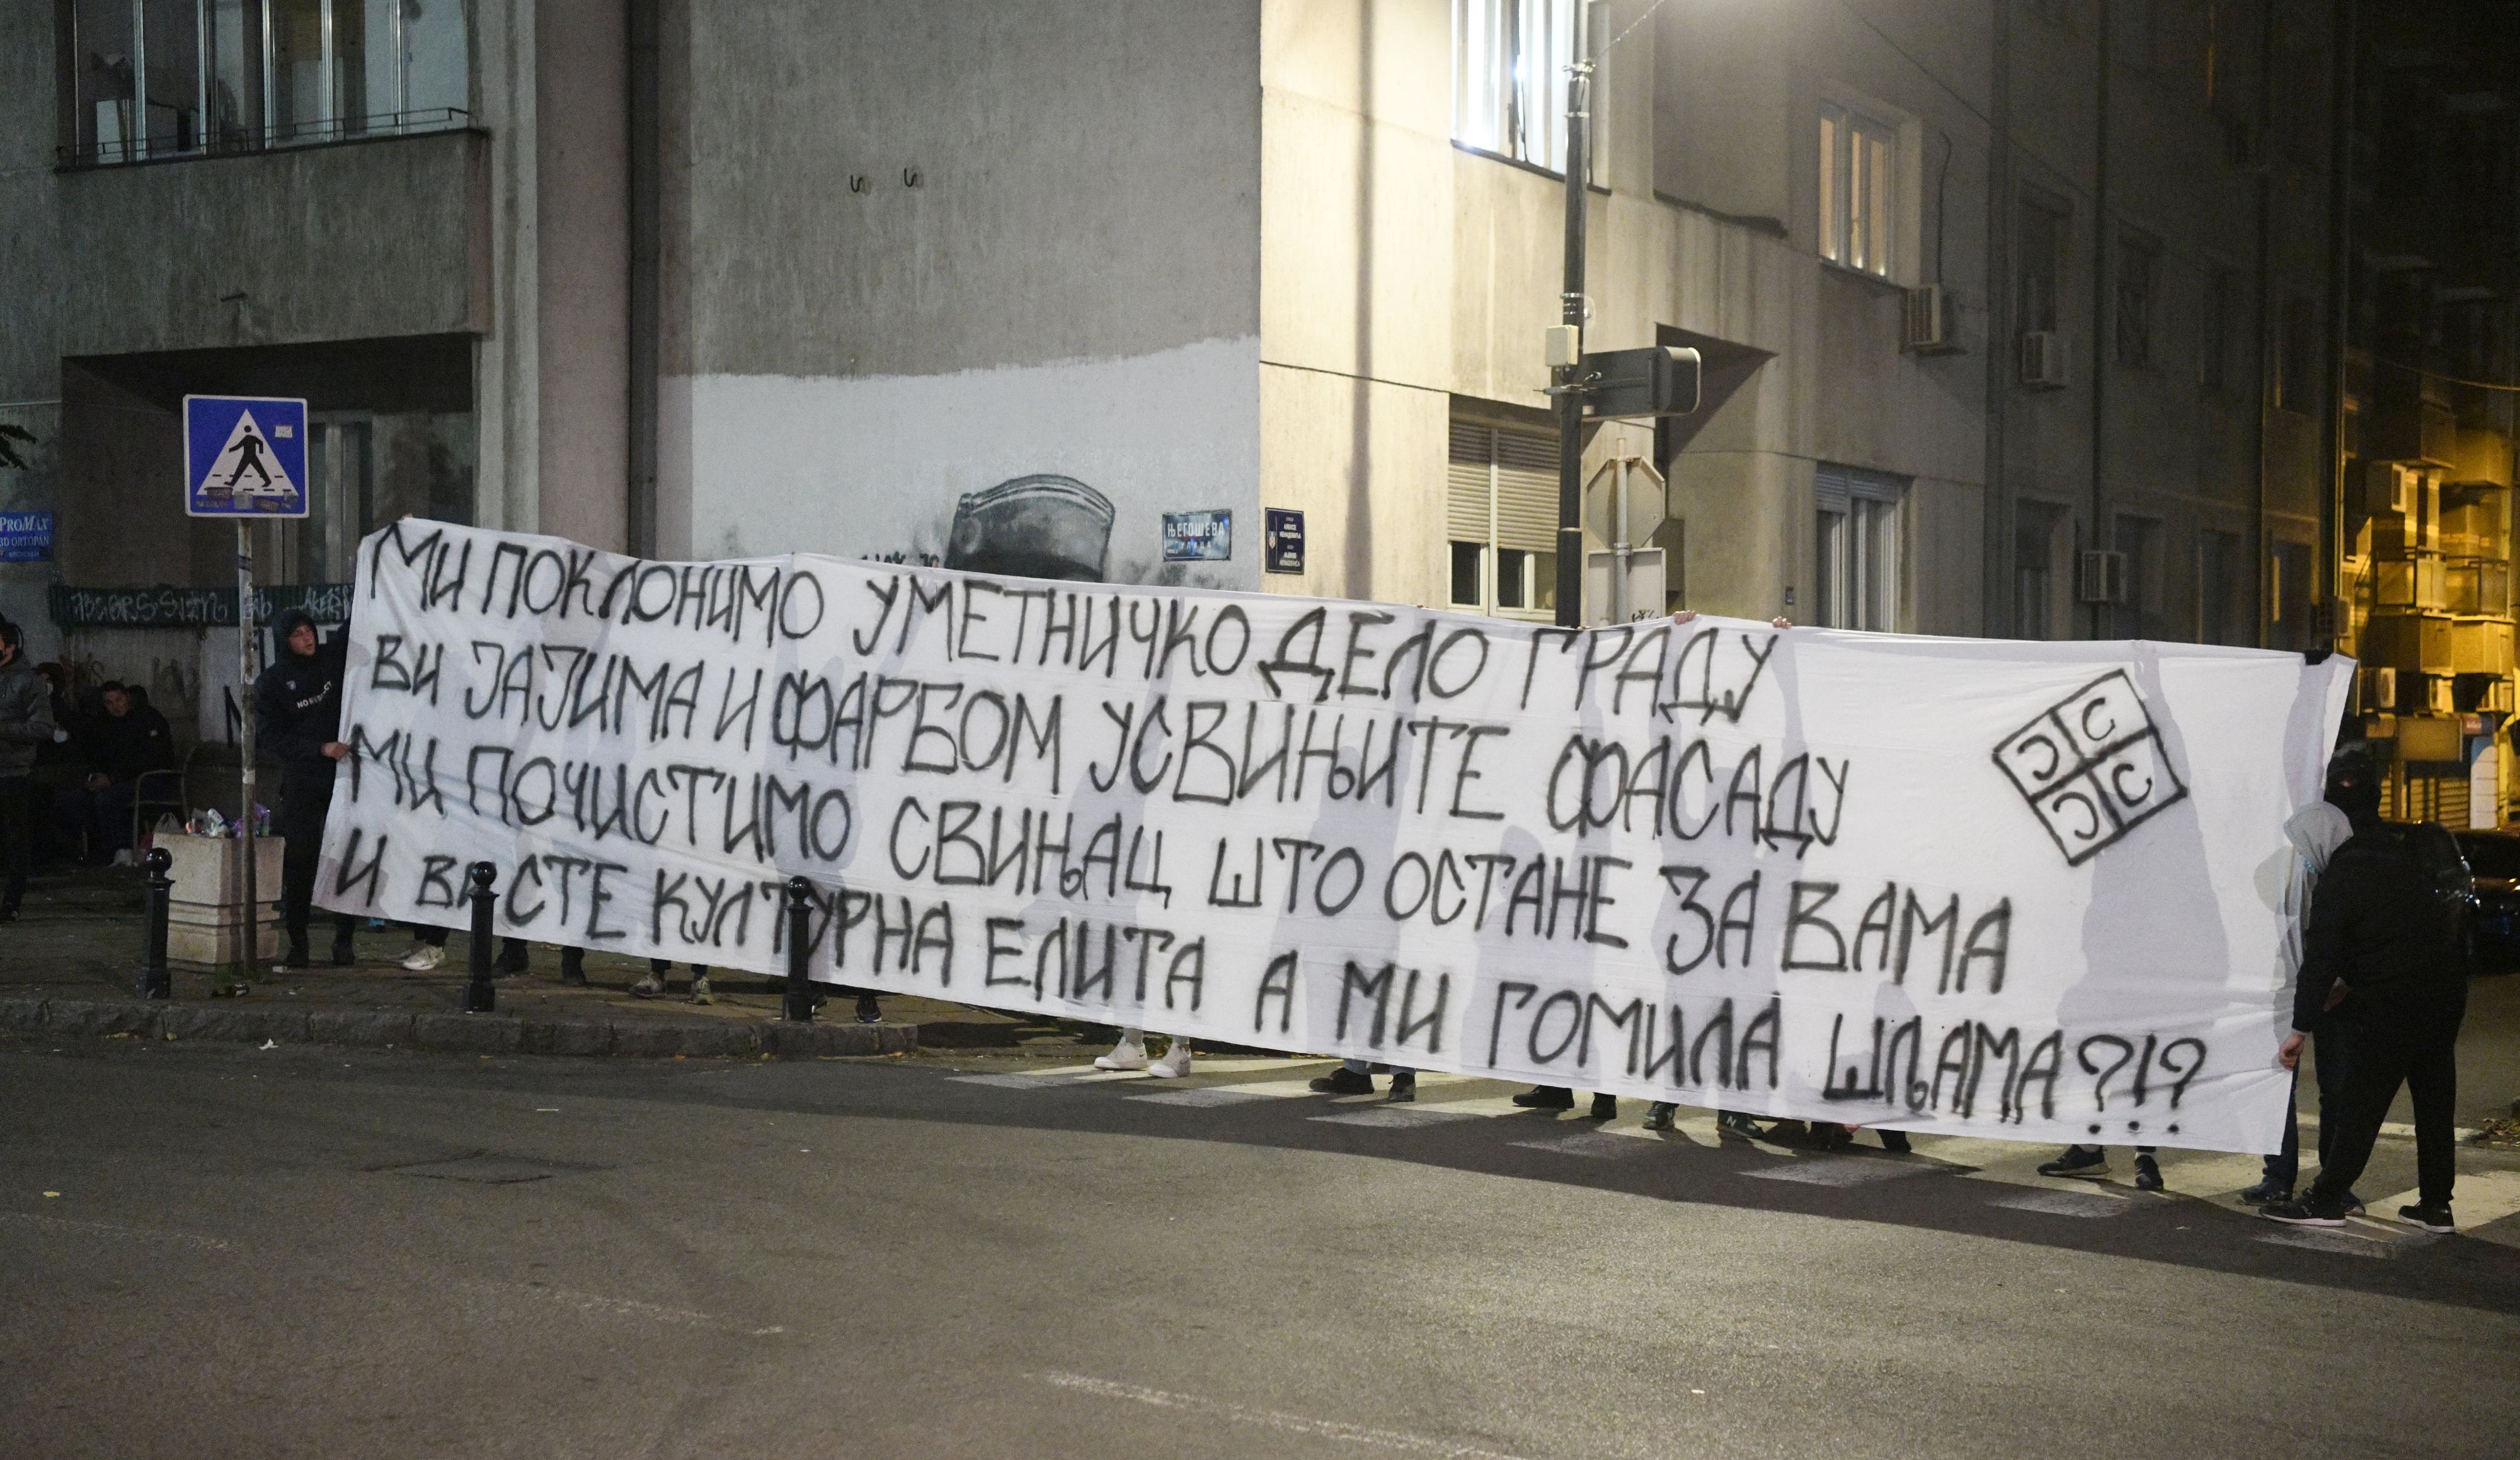 PROMAX
3D ORTOPAN
ЊЕГОШЕВА
УЛИЦА
МИ ПОКЛОНИМО УМЕТНИЧКО ДЕЛО ГРАДУ
ВИ ЈАЈИМА И ФАРБОМ УСВИЊИТЕ ФАСАДУ
МИ ПОЧИСТИМО СВИЊАЦ ШТО ОСТАНЕ ЗА ВАМА
И ВИ СТЕ КУЛТУРНА ЕЛИТА А МИ ГОМИЛА ШЉАМА?!?
С С
С С